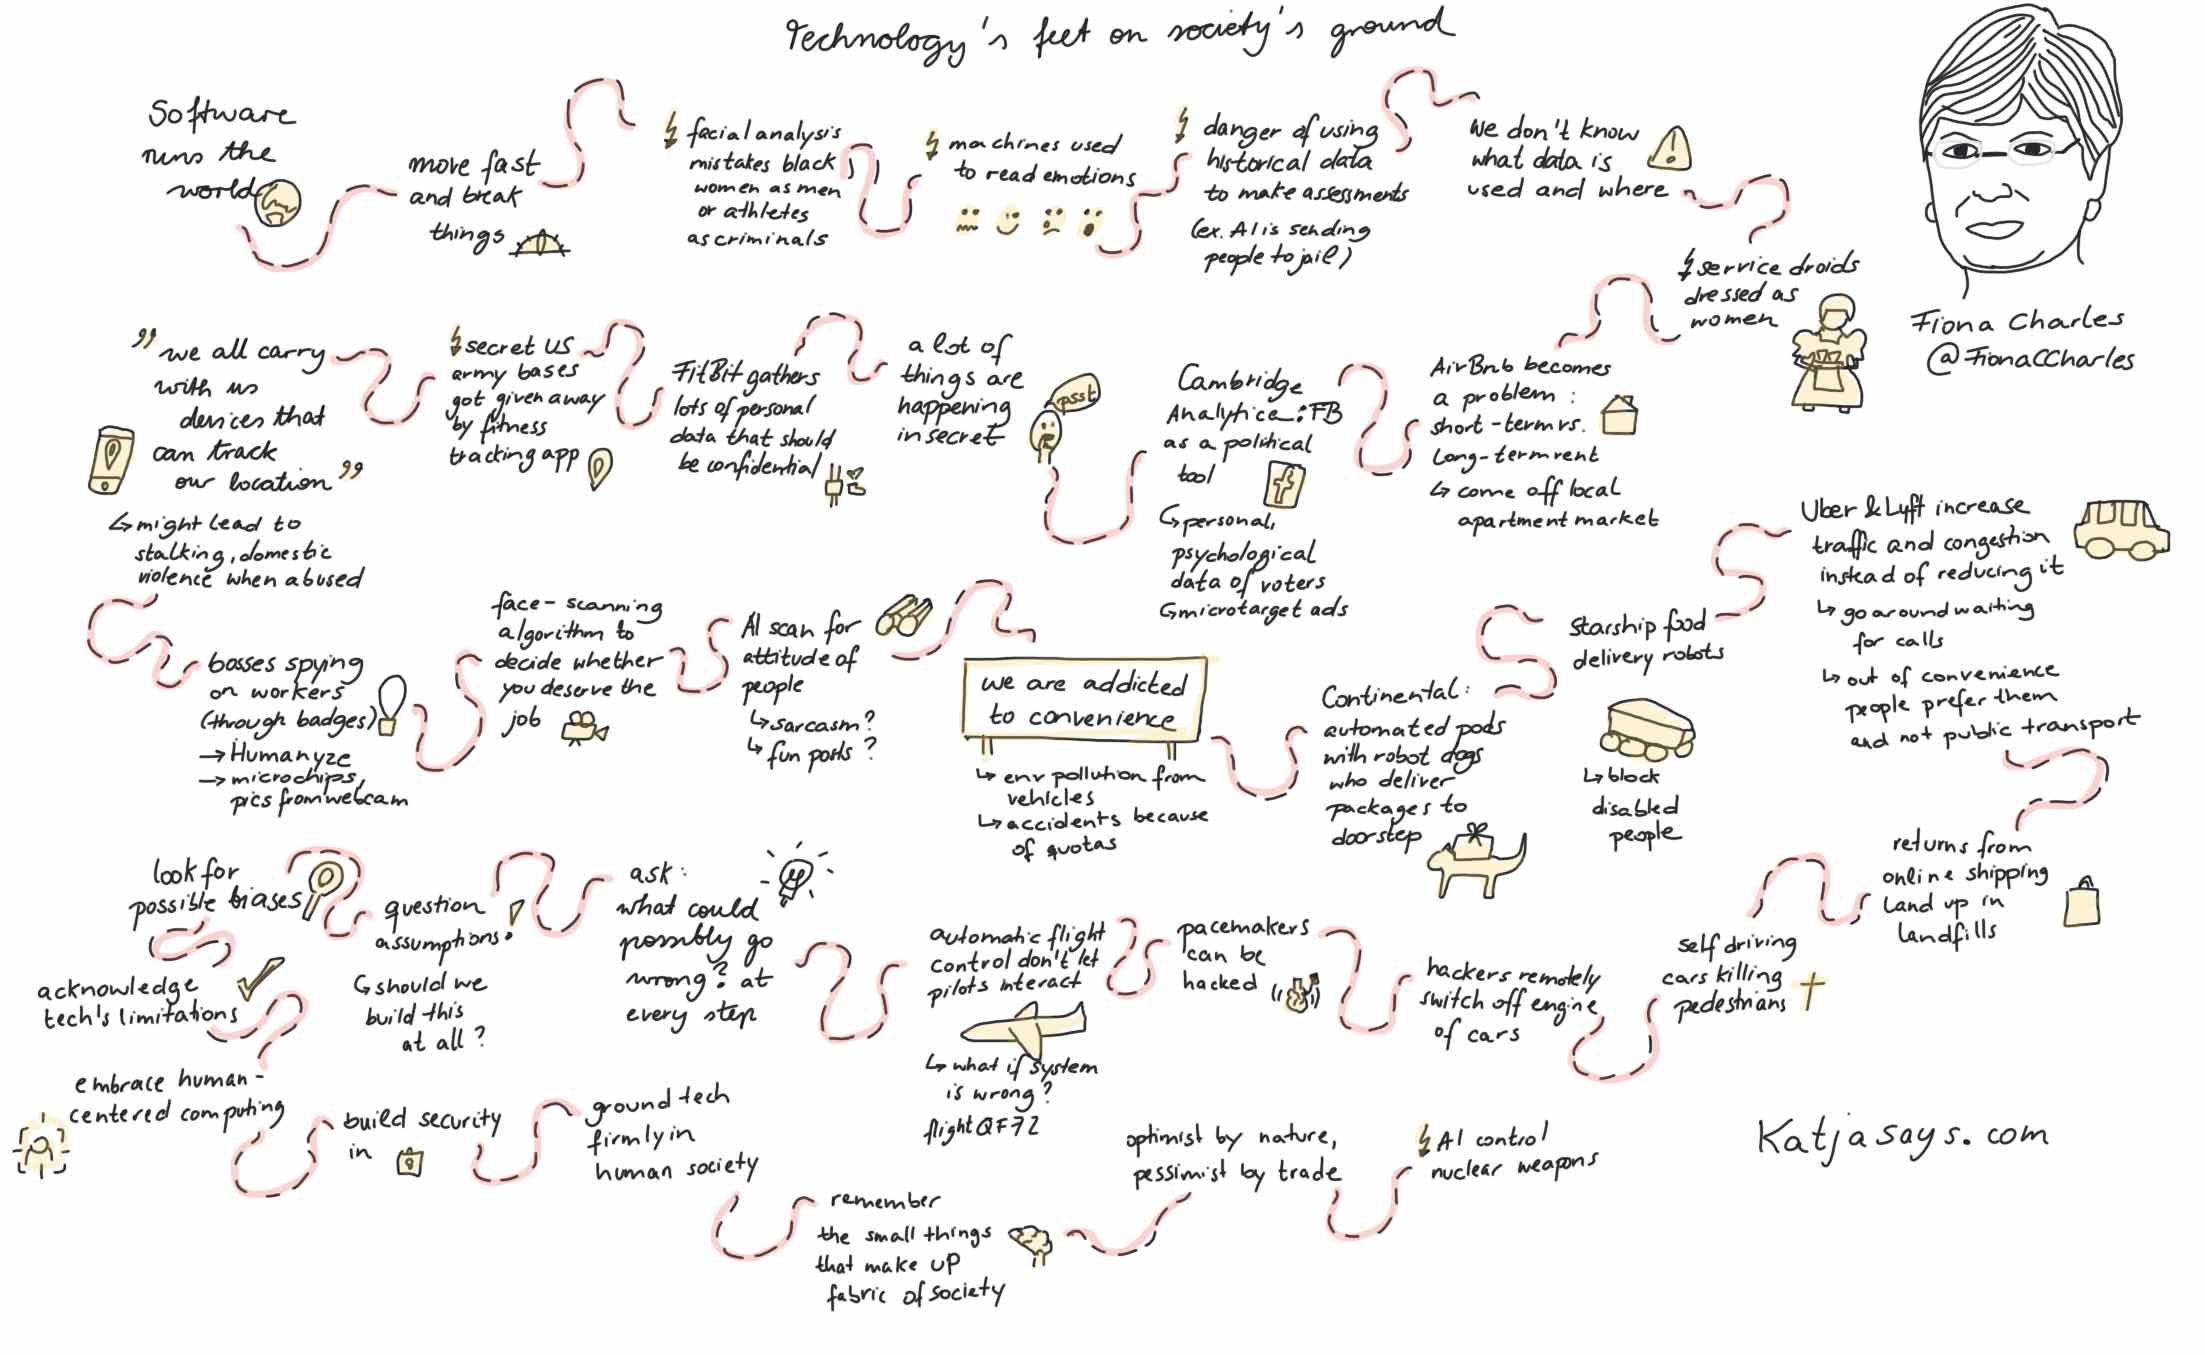 Technology's feet on society's ground
Software
runs the
world
move fast
and break
things
facial analysis
mistakes black
women as men
or athletes
as criminals
machines used
to read emotions
danger of using
historical data
to make assessments
(ex. AI is sending
people to jail)
we don't know
what data is
used and where
service droids
dressed as
women
Fiona Charles
@FionaCCharles
AirBnb becomes
a problem:
short-term vs.
long-term rent
↳ come off local
apartment market
Cambridge
Analytica: FB
as a political
tool
↳ personal,
psychological
data of voters
↳ microtarget ads
psst
a lot of
things are
happening
in secret
FitBit gathers
lots of personal
data that should
be confidential
secret US
army bases
got given away
by fitness
tracking app
" we all carry
with us
devices that
can track
our location "
↳ might lead to
stalking, domestic
violence when abused
bosses spying
on workers
(through badges)
→ Humanyze
→ microchips,
pics from webcam
face-scanning
algorithm to
decide whether
you deserve the
job
AI scan for
attitude of
people
↳ sarcasm?
↳ fun posts?
we are addicted
to convenience
↳ env pollution from
vehicles
↳ accidents because
of quotas
Continental:
automated pods
with robot dogs
who deliver
packages to
doorstep
Starship food
delivery robots
↳ block
disabled
people
Uber & Lyft increase
traffic and congestion
instead of reducing it
↳ go around waiting
for calls
↳ out of convenience
people prefer them
and not public transport
returns from
online shipping
land up in
landfills
self driving
cars killing
pedestrians
hackers remotely
switch off engine
of cars
pacemakers
can be
hacked
automatic flight
control don't let
pilots interact
↳ what if system
is wrong?
flight QF72
ask:
what could
possibly go
wrong? at
every step
question
assumptions
↳ should we
build this
at all?
look for
possible biases
acknowledge
tech's limitations
embrace human-
centered computing
build security
in
ground tech
firmly in
human society
remember
the small things
that make up
fabric of society
optimist by nature,
pessimist by trade
AI control
nuclear weapons
Katjasays.com